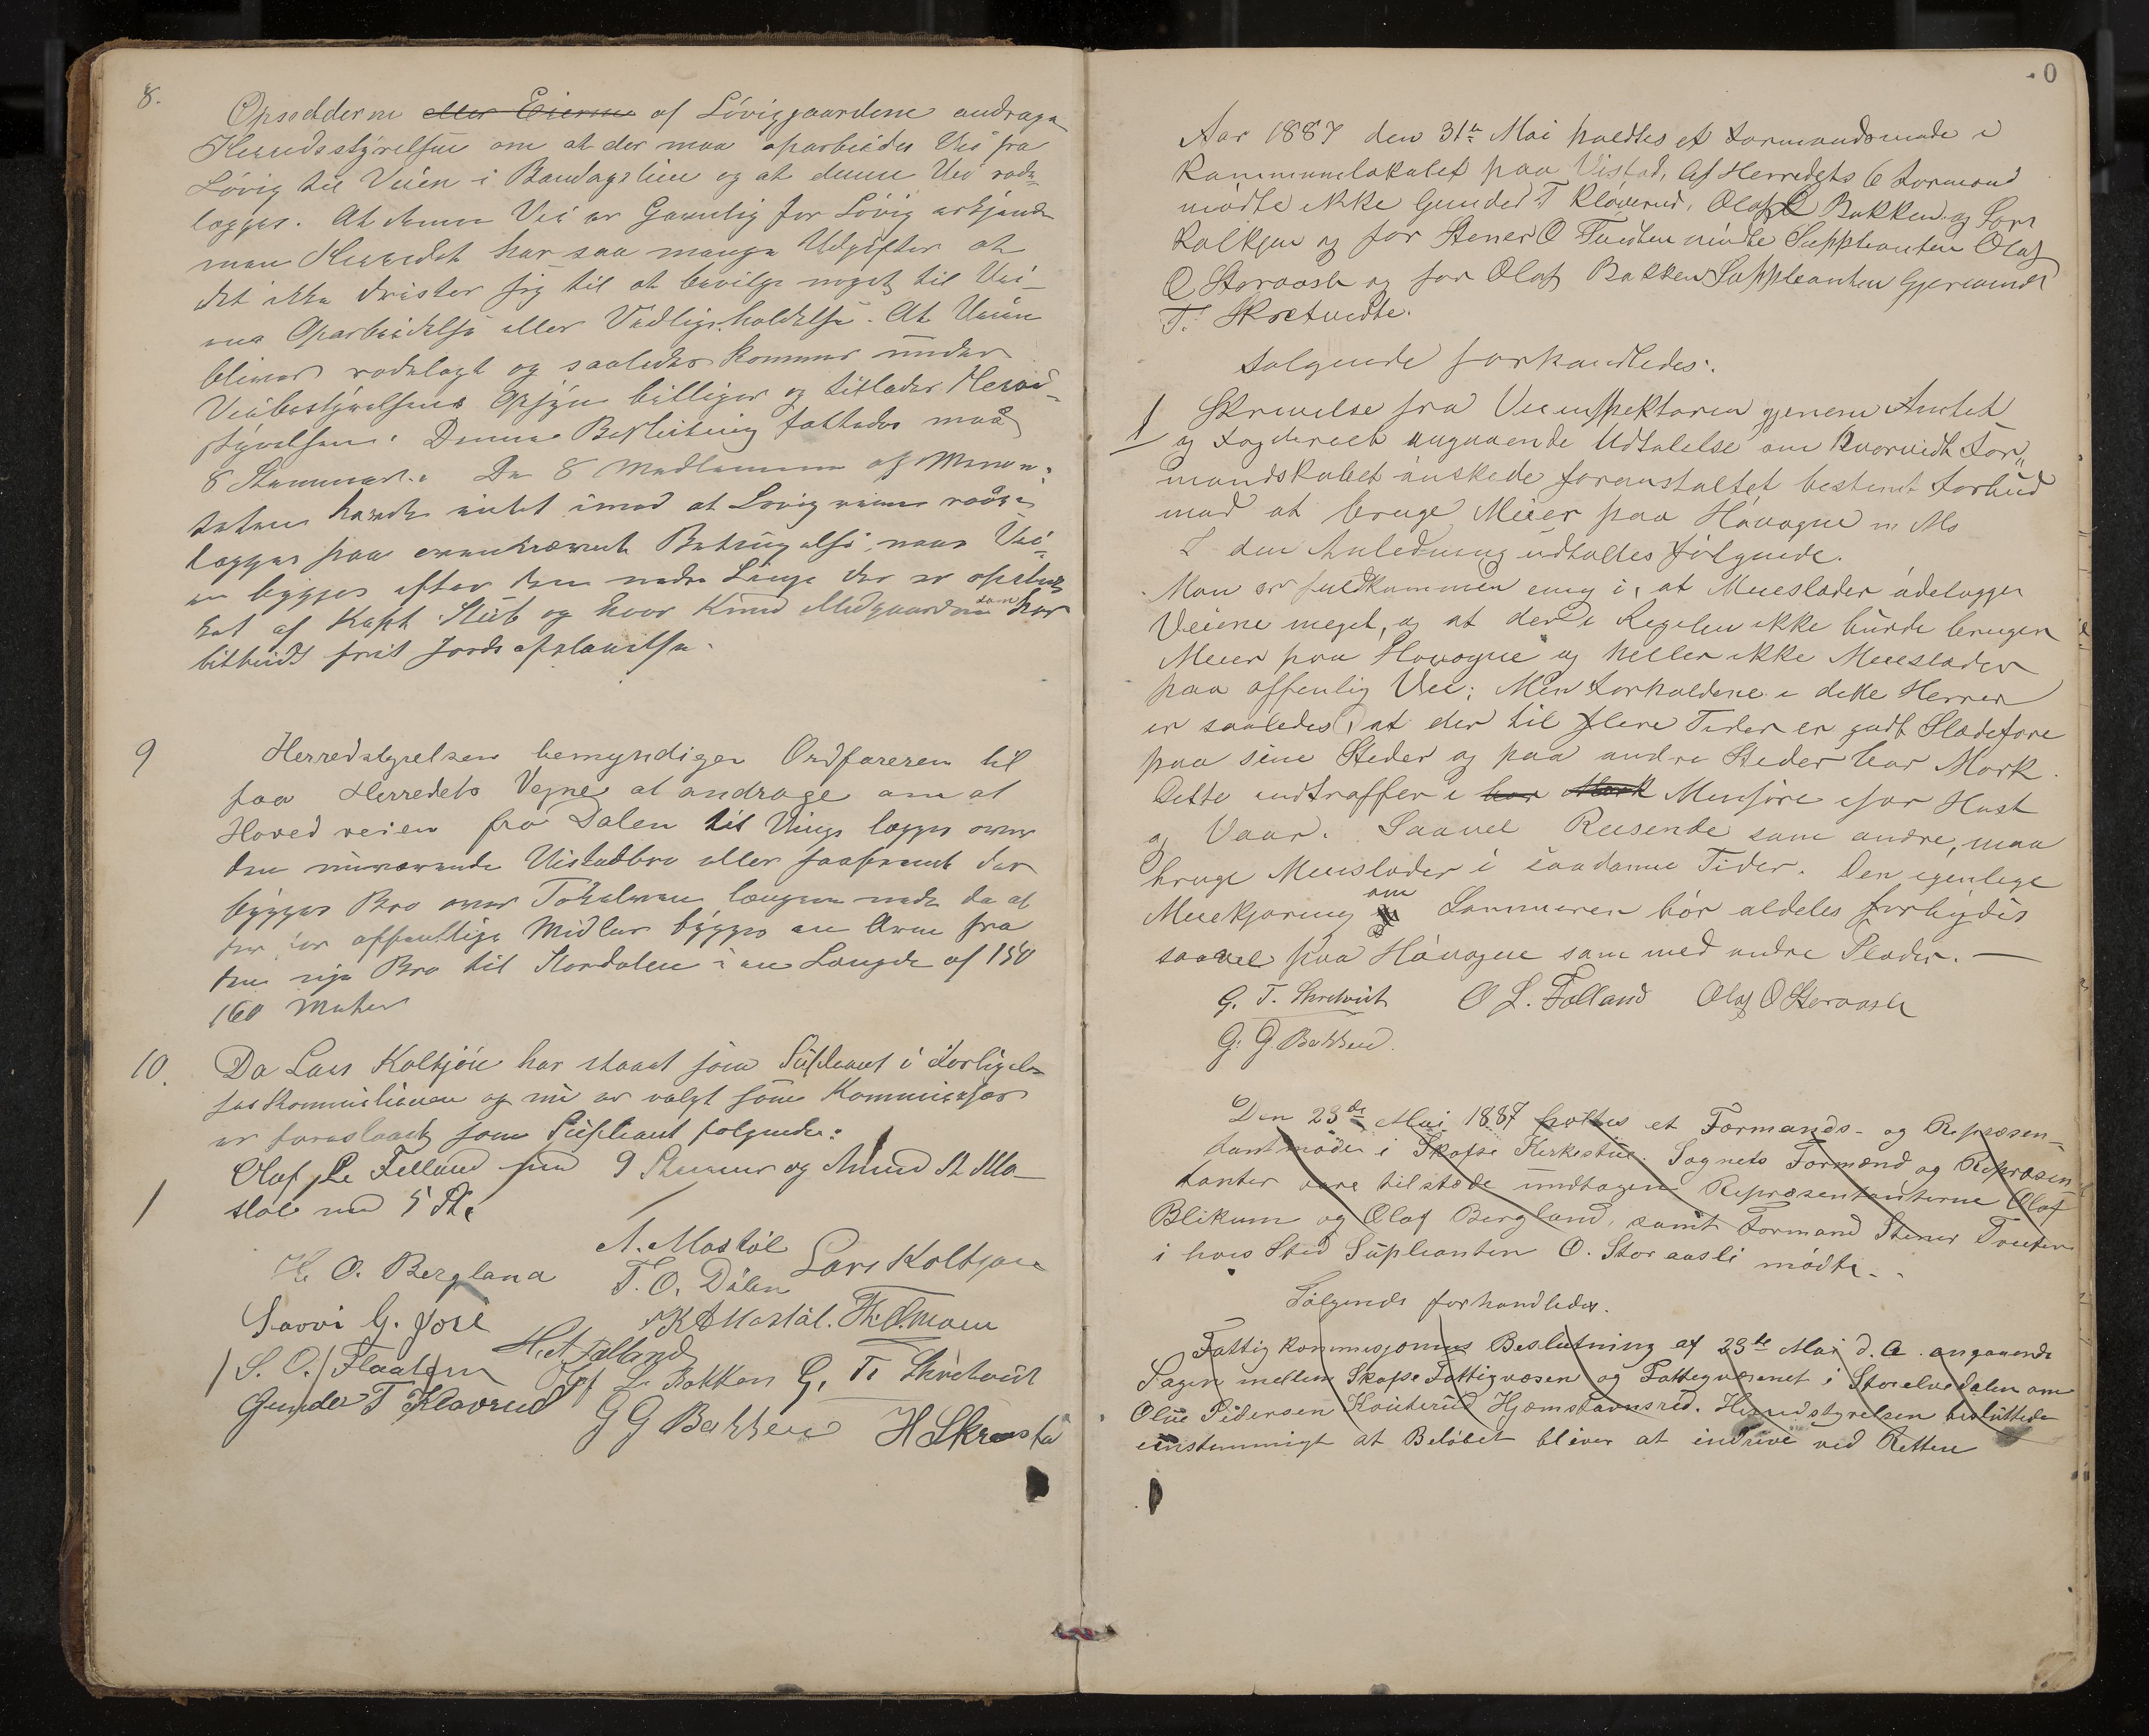 8.
Opsedderne eller Eierne af Löviggaardene andrage
Herredsstyrelsen om at der maa oparbeides Vei fra
Lövig til Veien i Bandagslien og at denne Vei rode-
lægges. At denne Vei er Gavnlig for Lövig erkjender
man Herredet har saa mange Udgifter at
det ikke drister sig til at bevilge noget til Vei-
ens Oparbeidelse eller Vedligeholdelse. At Veien
bliver rodelagt og saaledes kommer under
Veibestyrelsens Opsyn billiger og tillader Herred-
styrelsen. Denne Beslutning fattedes med
8 Stemmer. De 8 Medlemmer af
havde intet imod at Lövigveien rode-
lægges paa ovennævnte Betingelse, naar Vei-
en bygges efter den nedre Linje der er opstuk
ket af Kapt Stub og hvor Knud Midgaarden som har
tilbudt frit Jords afstaaelse.
9
Herredstyrelsen bemyndiger Ordføreren til
paa Herredets Vegne at andrage om at
Hovedveien fra Dalen til Vinje lægges over
den nuværende Vistadbro eller saafremt der
bygges Bro over Tokeelven længere nede da at
der for offentlige Midler bygges en Arm fra
den nye Bro til Stordalen i en Længde af 150
160 Meter
10.
Da Lars Koltjöne har staaet som Supleant i Forligel-
ses kommisionen og nu er valgt som Kommissær
er foreslaaet som Supleant følgende:
Olaf Le Felland med 9 Stemmer og Amund St Mo-
støl med 5 St.
A. Mostöl
K. O. Bergland T. O. Dålen Lars Koltjone
Savvi G. Jore K A Mostøl. Th. O. Moen
S. O. Flaaten H. A Felland
Olaf L. Bakken G. T. Skretveit
Gunder T Kløvrud G G Bakken H Skrensta
0
Aar 1887 den 31te Mai holdtes et Formandsmøde i
Kommunelokalet paa Vistad. Af Herredets 6 Formænd
mödte ikke Gunder T Kløverud, Olaf L Bakken og Lars
Kolkjen og for Stener O Tveiten mödte Suppleanten Olaf
O Storaasli og for Olaf Bakken Suppleanten Gjermund
T. Skretvedte.
Følgende forhandledes.
1
Skrivelse fra Veiinspektøren gjenem Amtet
og Fogderiet angaaende Udtalelse om hvorvidt For„
mandskabet önskede foranstaltet bestemt Forbud
mod at bruge Meier paa Hövogne m M
I den Anledning udtaltes følgende.
Man er fuldkommen enig i, at Meieslæder ödelægger
Veiene meget, og at der i Regelen ikke burde bruges
Meier paa Hövogne og heller ikke Meieslæder
paa offenlig Vei: Men Forholdene i dette Herred
er saaledes, at der til flere Tider er godt Slædeføre
paa sine Steder og paa andre Steder bar Mark.
Dette indtræffer i bar Mark Menföre især Høst
og Vaar. Saavel Reisende som andre, maa
bruge Meieslæder i saadanne Tider. Den egenlige
Meiekjøring om Sommeren bör aldeles forbydes
saavel paa Hövogne som med andre Slæder. —
G. T. Skretveit O L. Felland Olaf O Storaasli
G. G Bakken.
Den 23de Mai 1887 holtes et Formands- og Repræsen-
tantmöde i Skafse Kirkestue. Sognets Formænd og Repræsen
tanter vare tilstæde undtagen Repræsentanterne Olaf
Blikum og Olaf Bergland, samt Formand Stener Tveiten
i hvis Sted Supleanten O. Storaasli mödte.
Følgende forhandledes.
Fattigkommisjonens Beslutning af 23de Mai d. A. angaaende
Sagen mellem Skafse Fattigvæsen og Fattigvæsenet i Storelvedalen om
Olue Pedersen Hjemstavnsred. Herredstyrelsen besluttede
eenstemmigt at Belöbet bliver at indrive ved Retten